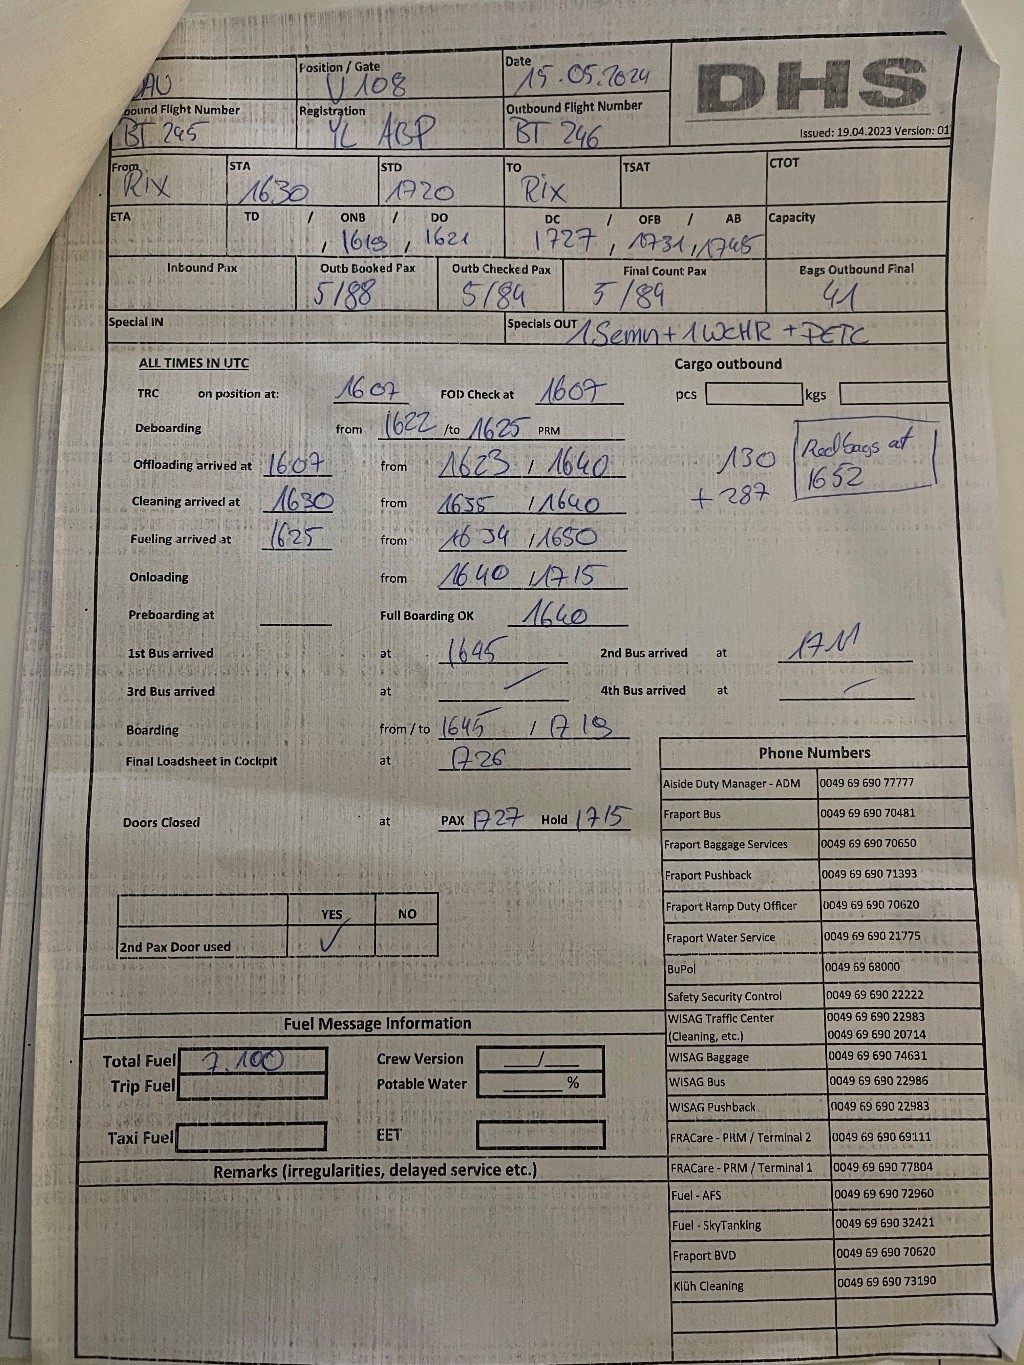 Position / Gate Date DHS
AU V 108 15.05.2024
bound Flight Number Registration Outbound Flight Number
BT 245 YL ABP BT 246 Issued: 19.04.2023 Version: 01
From STA STD TO TSAT CTOT
RIX 1630 1720 RIX
ETA TD / ONB / DO DC / OFB / AB Capacity
, 1619 , 1621 1727 , 1731 , 1745
Inbound Pax Outb Booked Pax Outb Checked Pax Final Count Pax Bags Outbound Final
5/88 5/84 5/84 41
Special IN Specials OUT 1 Semn + 1 WCHR + PETC
ALL TIMES IN UTC Cargo outbound
TRC on position at: 1607 FOD Check at 1607 pcs kgs
Deboarding from 1622 /to 1625 PRM
Offloading arrived at 1607 from 1623 , 1640 130 Red bags at
Cleaning arrived at 1630 from 1635 / 1640 + 287 1652
Fueling arrived at 1625 from 1634 , 1650
Onloading from 1640 , 1715
Preboarding at Full Boarding OK 1640
1st Bus arrived at 1645 2nd Bus arrived at 1711
3rd Bus arrived at 4th Bus arrived at
Boarding from / to 1645 / 1719
Final Loadsheet in Cockpit at 1726
Doors Closed at PAX 1727 Hold 1715
Phone Numbers
Aiside Duty Manager - ADM 0049 69 690 77777
Fraport Bus 0049 69 690 70481
Fraport Baggage Services 0049 69 690 70650
Fraport Pushback 0049 69 690 71393
Fraport Ramp Duty Officer 0049 69 690 70620
Fraport Water Service 0049 69 690 21775
BuPol 0049 69 68000
Safety Security Control 0049 69 690 22222
WISAG Traffic Center 0049 69 690 22983
(Cleaning, etc.) 0049 69 690 20714
WISAG Baggage 0049 69 690 74631
WISAG Bus 0049 69 690 22986
WISAG Pushback 0049 69 690 22983
FRACare - PRM / Terminal 2 0049 69 690 69111
FRACare - PRM / Terminal 1 0049 69 690 77804
Fuel - AFS 0049 69 690 72960
Fuel - SkyTanking 0049 69 690 32421
Fraport BVD 0049 69 690 70620
Klüh Cleaning 0049 69 690 73190
YES NO
2nd Pax Door used ✓
Fuel Message Information
Total Fuel 7.100 Crew Version /
Trip Fuel Potable Water %
Taxi Fuel EET
Remarks (irregularities, delayed service etc.)